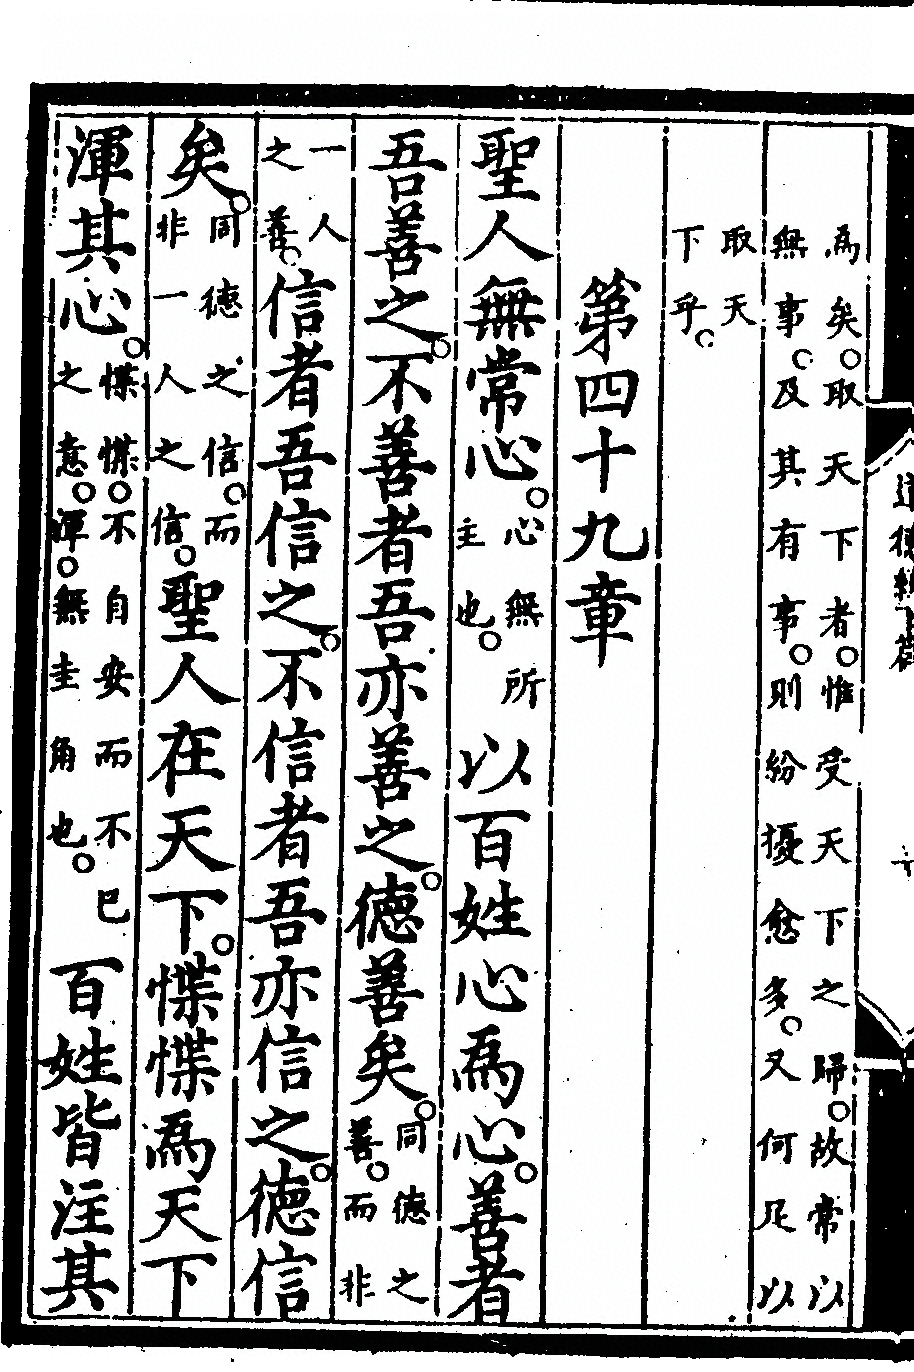 道德經下篇
為矣。取天下者。惟受天下之歸。故常以
無事。及其有事。則紛擾愈多。又何足以
取天
下乎。
第四十九章
聖人無常心。心無所主也。以百姓心為心。善者
吾善之。不善者吾亦善之。徳善矣。同徳之善。而非
一人之善。信者吾信之。不信者吾亦信之。徳信
矣。同徳之信。而非一人之信。聖人在天下。惵惵為天下
渾其心。惵惵。不自安而不已之意。渾。無圭角也。百姓皆注其